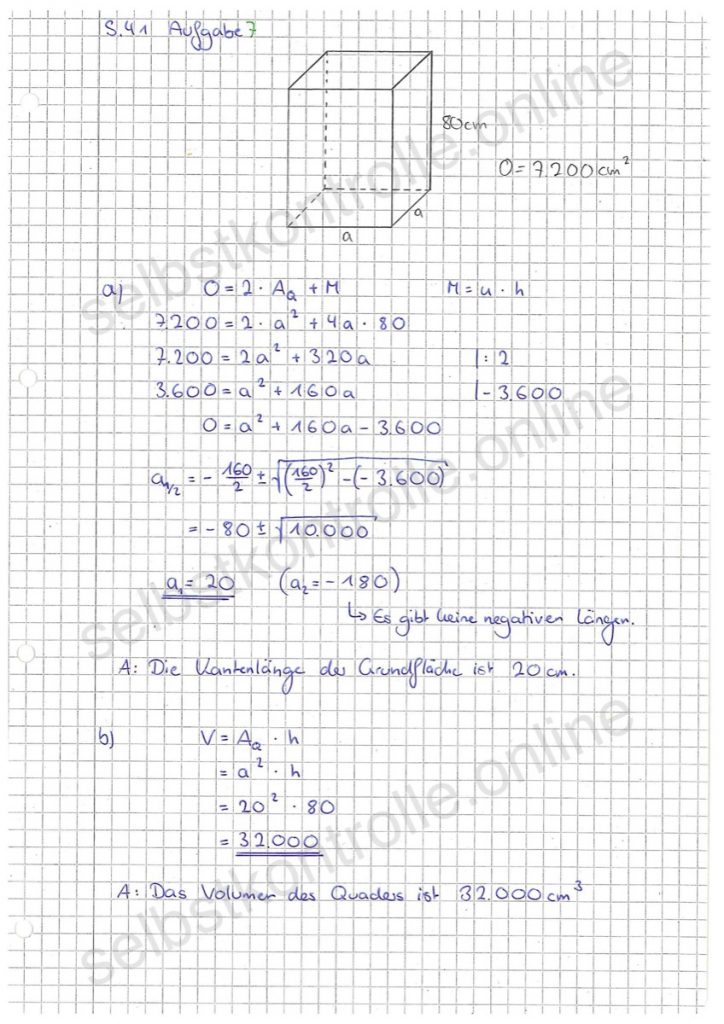 S.41 Aufgabe 7
80cm
O = 7.200 cm²
a
a
a) O = 2 · A_Q + M M = u · h
7.200 = 2 · a² + 4a · 80
7.200 = 2a² + 320a | : 2
3.600 = a² + 160a | - 3.600
0 = a² + 160a - 3.600
a_1/2 = - 160/2 ± √((160/2)² - (- 3.600))
= - 80 ± √10.000
a_1 = 20 (a_2 = - 180)
↳ Es gibt keine negativen Längen.
A: Die Kantenlänge der Grundfläche ist 20 cm.
b) V = A_Q · h
= a² · h
= 20² · 80
= 32.000
A: Das Volumen des Quaders ist 32.000 cm³
selbstkontrolle.online
selbstkontrolle.online
selbstkontrolle.online